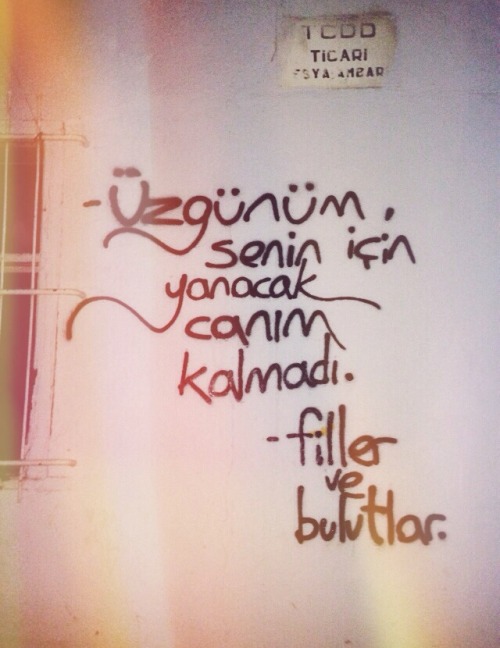 TCDD
TİCARİ
EŞYA AMBAR
-Üzgünüm,
senin için
yanacak
canım
kalmadı.
-filler
ve
bulutlar.